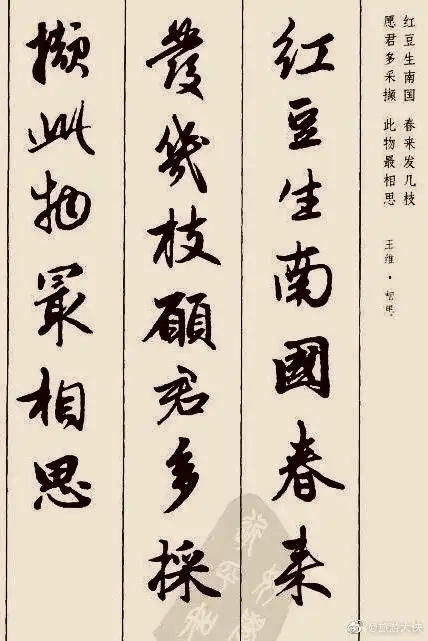 红豆生南国 春来发几枝
愿君多采撷 此物最相思
王维·相思
红豆生南國春来
發幾枝願君多採
撷此物最相思
@旅游大侠